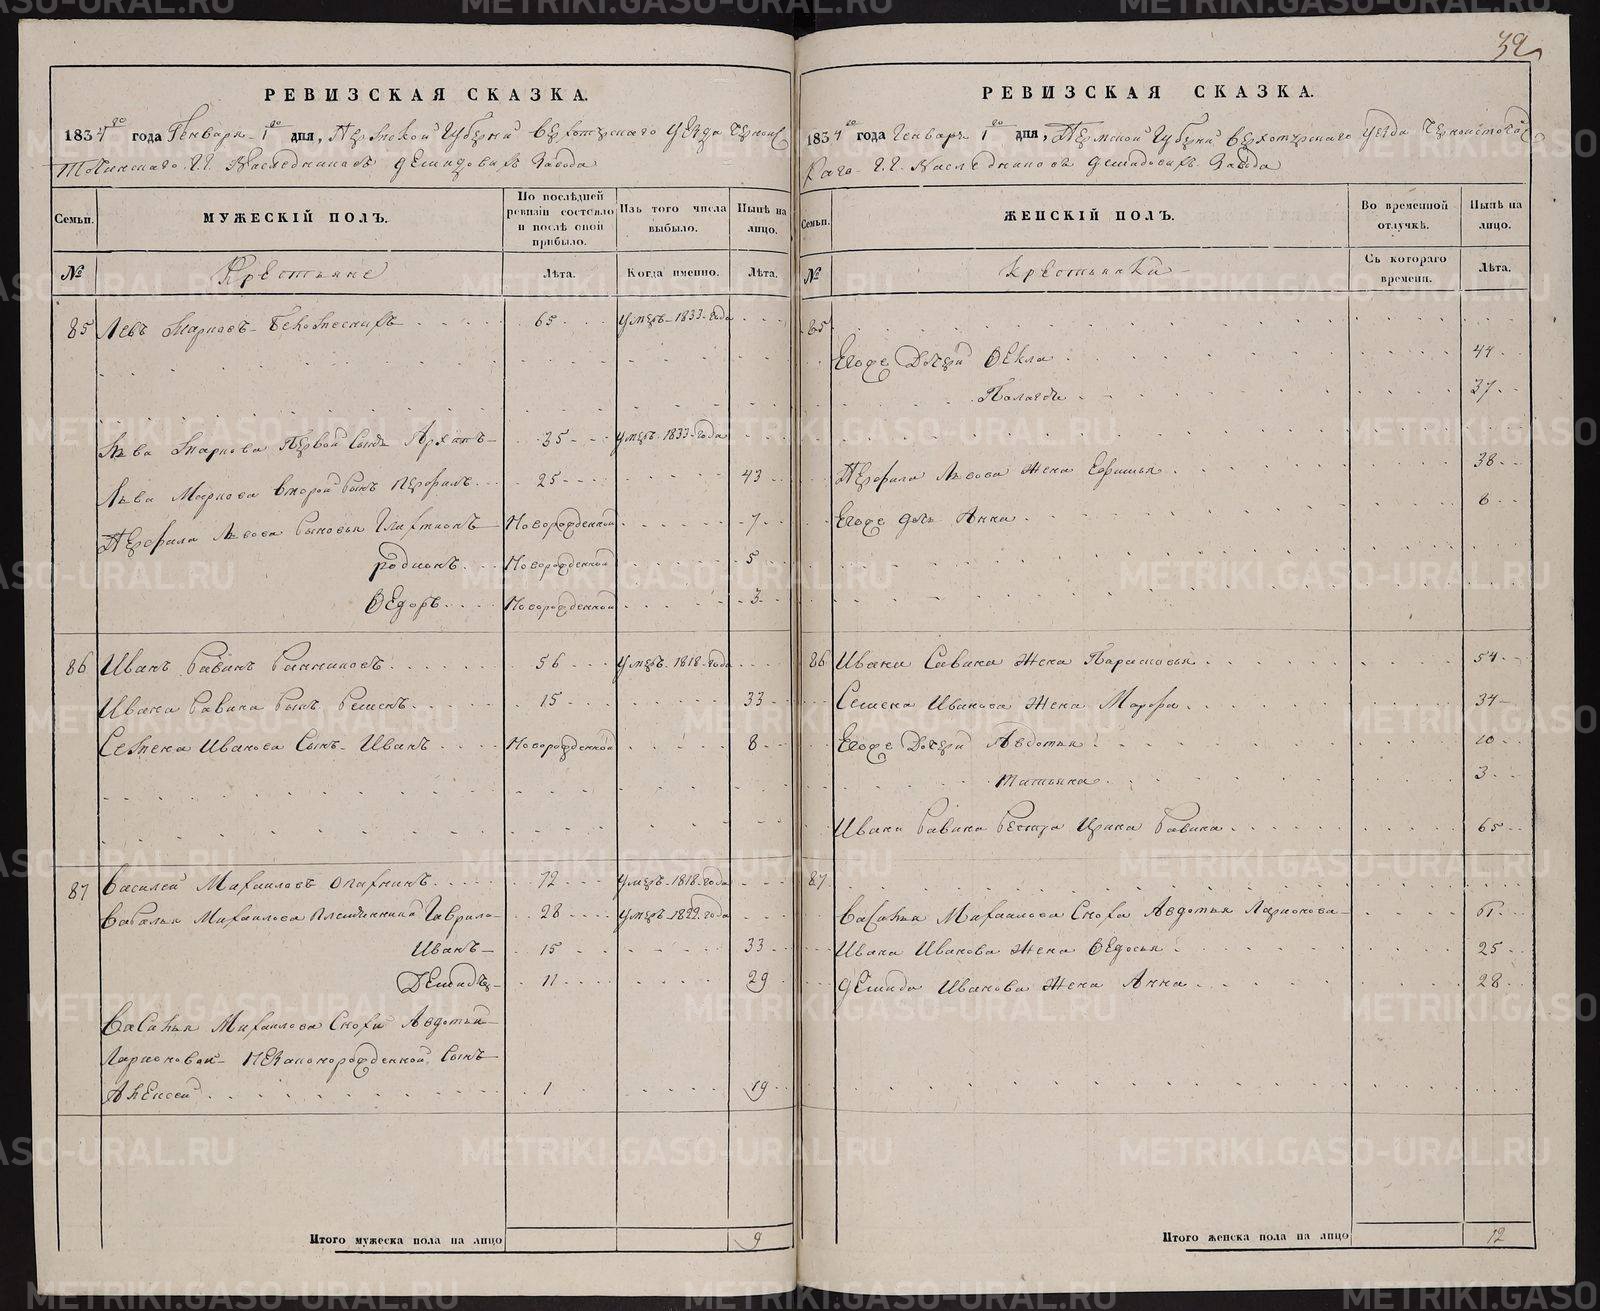 39
РЕВИЗСКАЯ СКАЗКА.
1834 го года Генваря 1 го дня, Пермской Губернии Верхотурскаго уезда Черноис
точинскаго Г.Г. Наследниковъ Демидовыхъ Завода
Семьи.
МУЖЕСКІЙ ПОЛЪ.
По послѣдней ревизіи состояло и послѣ оной прибыло.
Изъ того числа выбыло.
Нынѣ на лицо.
№
Крестьяне
Лѣта.
Когда именно.
Лѣта.
85 Левъ Марковъ 65 умеръ 1833 года
Льва Маркова Первой Сынъ Архипъ 35 умеръ 1833 года
Льва Маркова второй Сынъ Перфилъ 25 43
Перфила Львова Сыновья Новорожденной 7
Родионъ Новорожденной 5
Ѳедоръ Новорожденной 3
86 Иванъ Савинъ Санниковъ 56 умеръ 1818 года
Ивана Савина Сынъ Семенъ 15 33
Семена Иванова Сынъ Иванъ Новорожденной 8
87 Василей Михаиловъ 72 умеръ 1818 года
Василья Михаилова племянники Гаврило 28 умеръ 1822 года
Иванъ 15 33
Демидъ 11 29
Василья Михаилова Снохи Авдотьи
Ларионовой незаконорожденной Сынъ
Алексей 1 19
Итого мужеска пола на лицо 9
РЕВИЗСКАЯ СКАЗКА.
1834 го года Генваря 1 го дня, Пермской Губернии Верхотурскаго уезда Черноисточинс
каго Г.Г. Наследниковъ Демидовыхъ Завода
Семьи.
ЖЕНСКІЙ ПОЛЪ.
Во временной отлучкѣ.
Нынѣ на лицо.
№
Крестьянки
Съ котораго времени.
Лѣта.
85
Егоже Дочери Ѳекла 44
Палагея 37
Перфила Львова Жена Ефимья 38
Егоже дочь Анна 6
86 Ивана Савина Жена Парасковья 54
Семена Иванова Жена Марфа 34
Егоже Дочери Авдотья 10
Татьяна 3
Ивана Савина Сестра Ирина Савина 65
87
Василья Михаилова Сноха Авдотья Ларионова 61
Ивана Иванова Жена Ѳедосья 25
Демида Иванова Жена Анна 28
Итого женска пола на лицо 12
METRIKI.GASO-URAL.RU